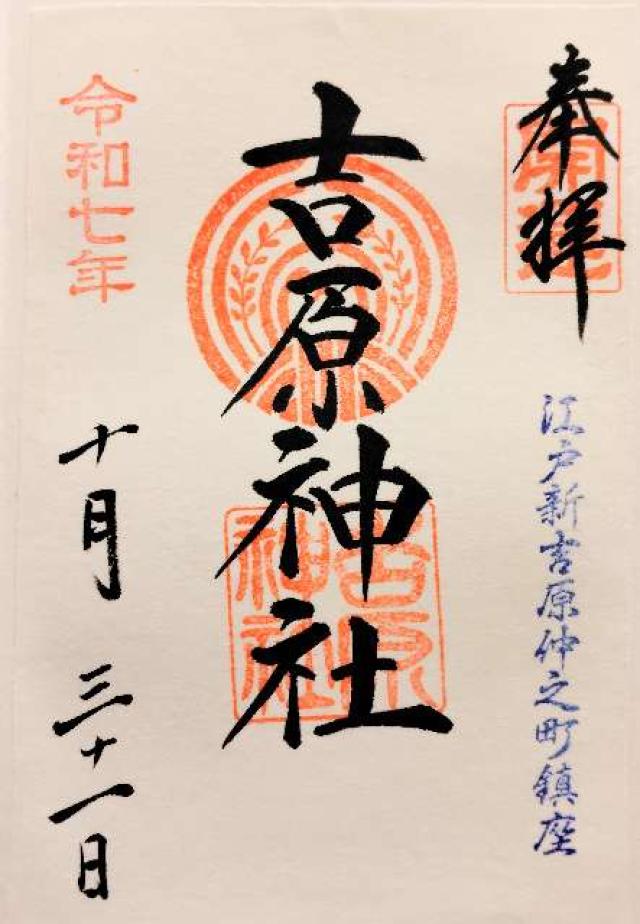 奉拝
江戸新吉原仲之町鎮座
吉原神社
吉原神社
令和七年
十月三十一日